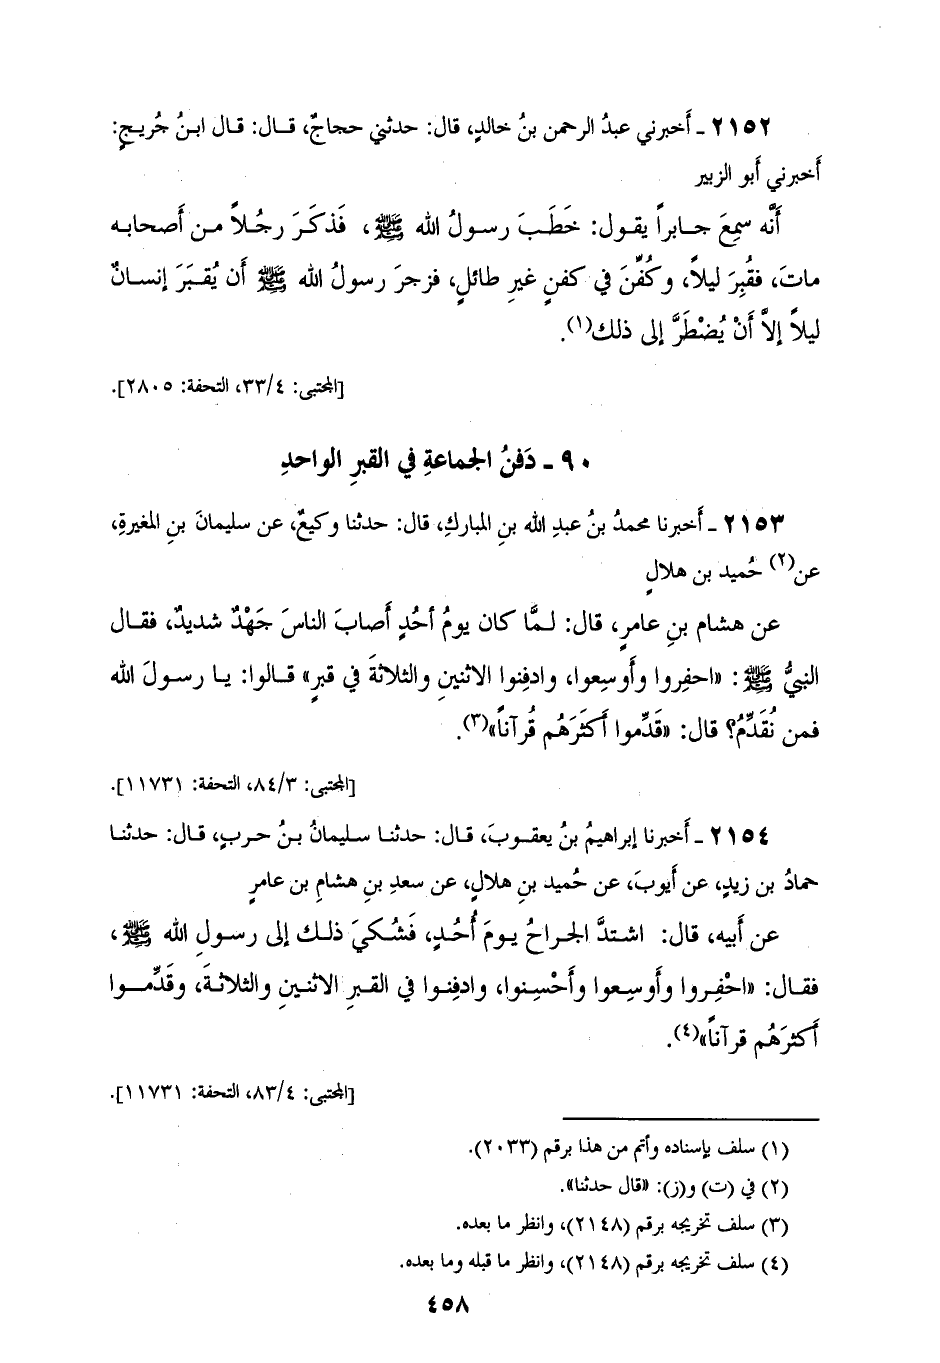 ٢١٥٢ ـ أَخبرني عبدُ الرحمن بنُ خالدٍ، قال: حدثني حجاجٌ، قال: قال ابنُ جُريجٍ:
أَخبرني أَبو الزبير
أَنَّه سمِعَ جابراً يقول: خَطَبَ رسولُ الله ﷺ، فَذكَرَ رجُلاً من أَصحابه
ماتَ، فقُبِرَ ليلاً، وكُفِّنَ في كفنٍ غيرِ طائلٍ، فزجرَ رسولُ الله ﷺ أَن يُقبَرَ إنسانٌ
ليلاً إلاَّ أَنْ يُضْطَرَّ إلى ذلك(١).
[المجتبى: ٣٣/٤، التحفة: ٢٨٠٥].
٩٠ ـ دَفنُ الجماعةِ في القبرِ الواحدِ
٢١٥٣ ـ أَخبرنا محمدُ بنُ عبدِ الله بنِ المباركِ، قال: حدثنا وكيعٌ، عن سليمانَ بنِ المغيرةِ،
عن(٢) حُميد بن هلالٍ
عن هشام بنِ عامرٍ، قال: لمَّا كان يومُ أحُدٍ أَصابَ الناسَ جَهْدٌ شديدٌ، فقال
النبيُّ ﷺ: «احفِروا وأَوسِعوا، وادفِنوا الاثنينِ والثلاثةَ في قبرٍ» قالوا: يا رسولَ الله
فمن نُقَدِّمُ؟ قال: «قَدِّموا أَكثَرَهُم قُرآناً»(٣).
[المجتبى: ٨٤/٣، التحفة: ١١٧٣١].
٢١٥٤ ـ أَخبرنا إبراهيمُ بنُ يعقوبَ، قال: حدثنا سليمانُ بنُ حربٍ، قال: حدثنا
حمادُ بن زيدٍ، عن أَيوبَ، عن حُميد بنِ هلالٍ، عن سعدِ بنِ هشامِ بن عامرٍ
عن أَبيه، قال: اشتدَّ الجراحُ يومَ أُحُدٍ، فَشُكيَ ذلك إلى رسولِ الله ﷺ،
فقال: «احْفِروا وأَوسِعوا وأَحْسِنوا، وادفِنوا في القبرِ الاثنينِ والثلاثةَ، وقَدِّموا
أَكثرَهُم قرآناً»(٤).
[المجتبى: ٨٣/٤، التحفة: ١١٧٣١].
(١) سلف بإسناده وأتم من هذا برقم (٢٠٣٣).
(٢) في (ت) و(ز): «قال حدثنا».
(٣) سلف تخريجه برقم (٢١٤٨)، وانظر ما بعده.
(٤) سلف تخريجه برقم (٢١٤٨)، وانظر ما قبله وما بعده.
٤٥٨